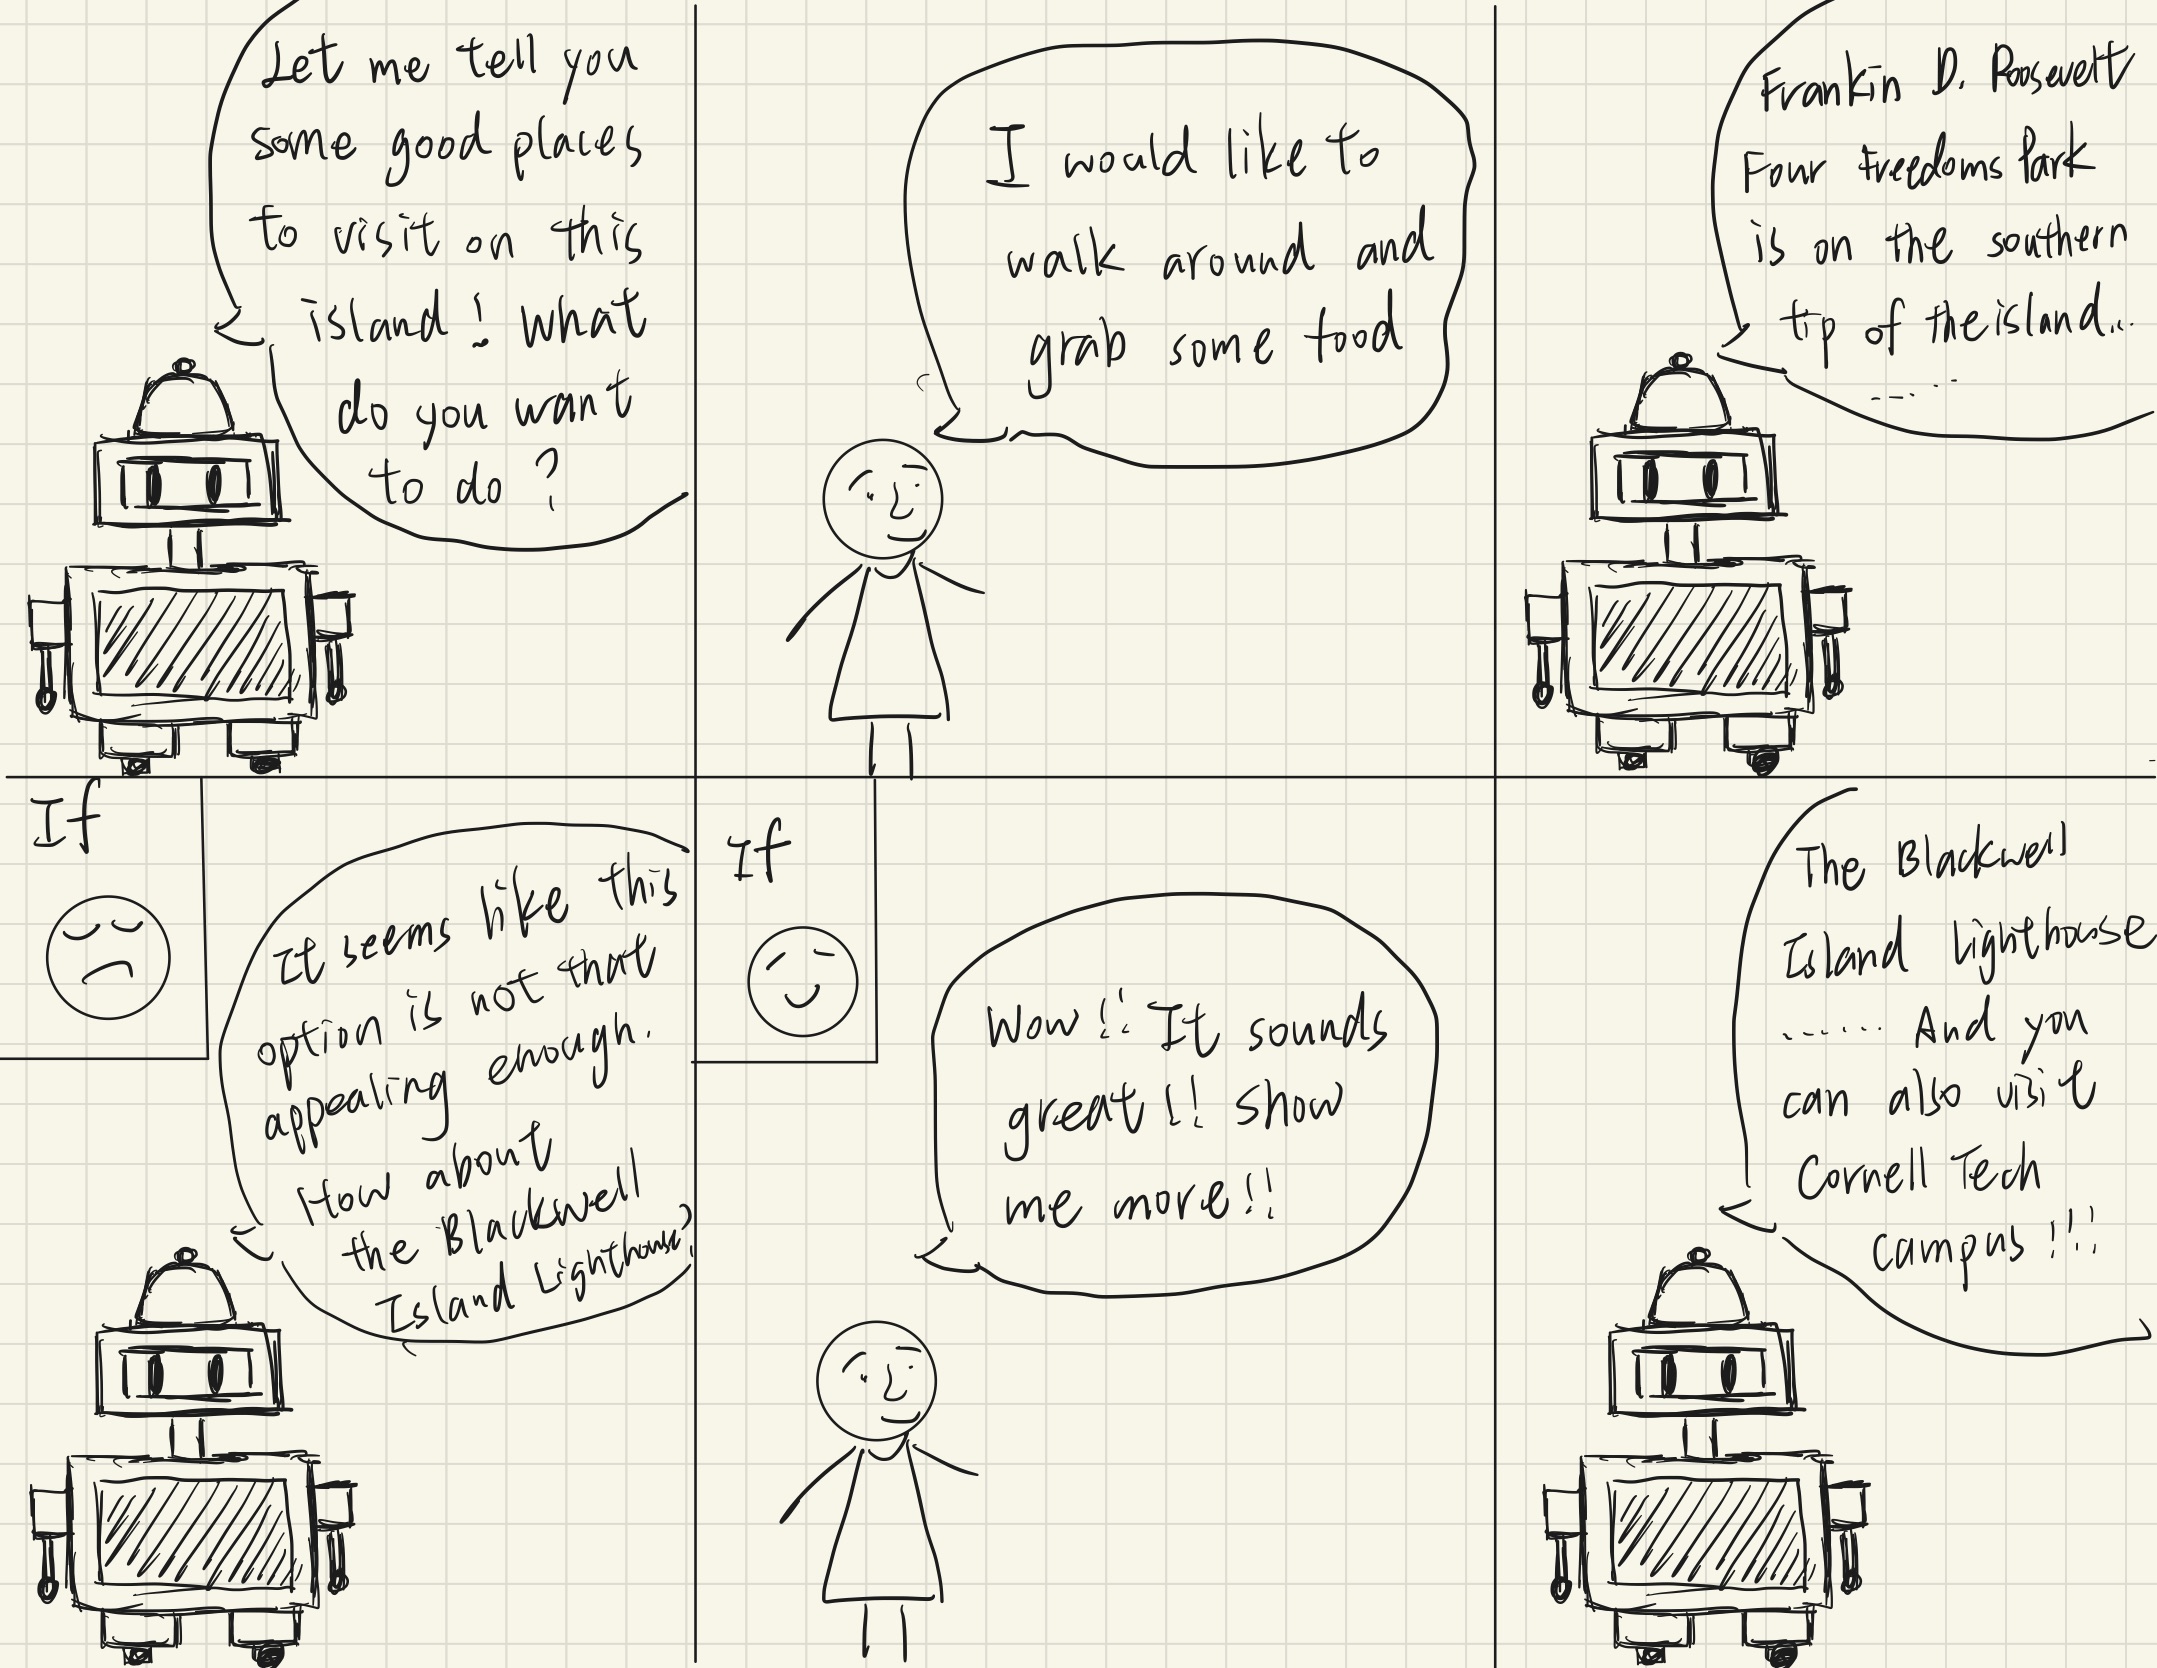 Let me tell you
some good places
to visit on this
island! What
do you want
to do?
I would like to
walk around and
grab some food
Frankin D. Roosevelt
Four Freedoms Park
is on the southern
tip of the island...
-----
If
It seems like this
option is not that
appealing enough.
How about
the Blackwell
Island Lighthouse?
If
Wow!! It sounds
great!! Show
me more!!
The Blackwell
Island Lighthouse
...... And you
can also visit
Cornell Tech
campus!!!